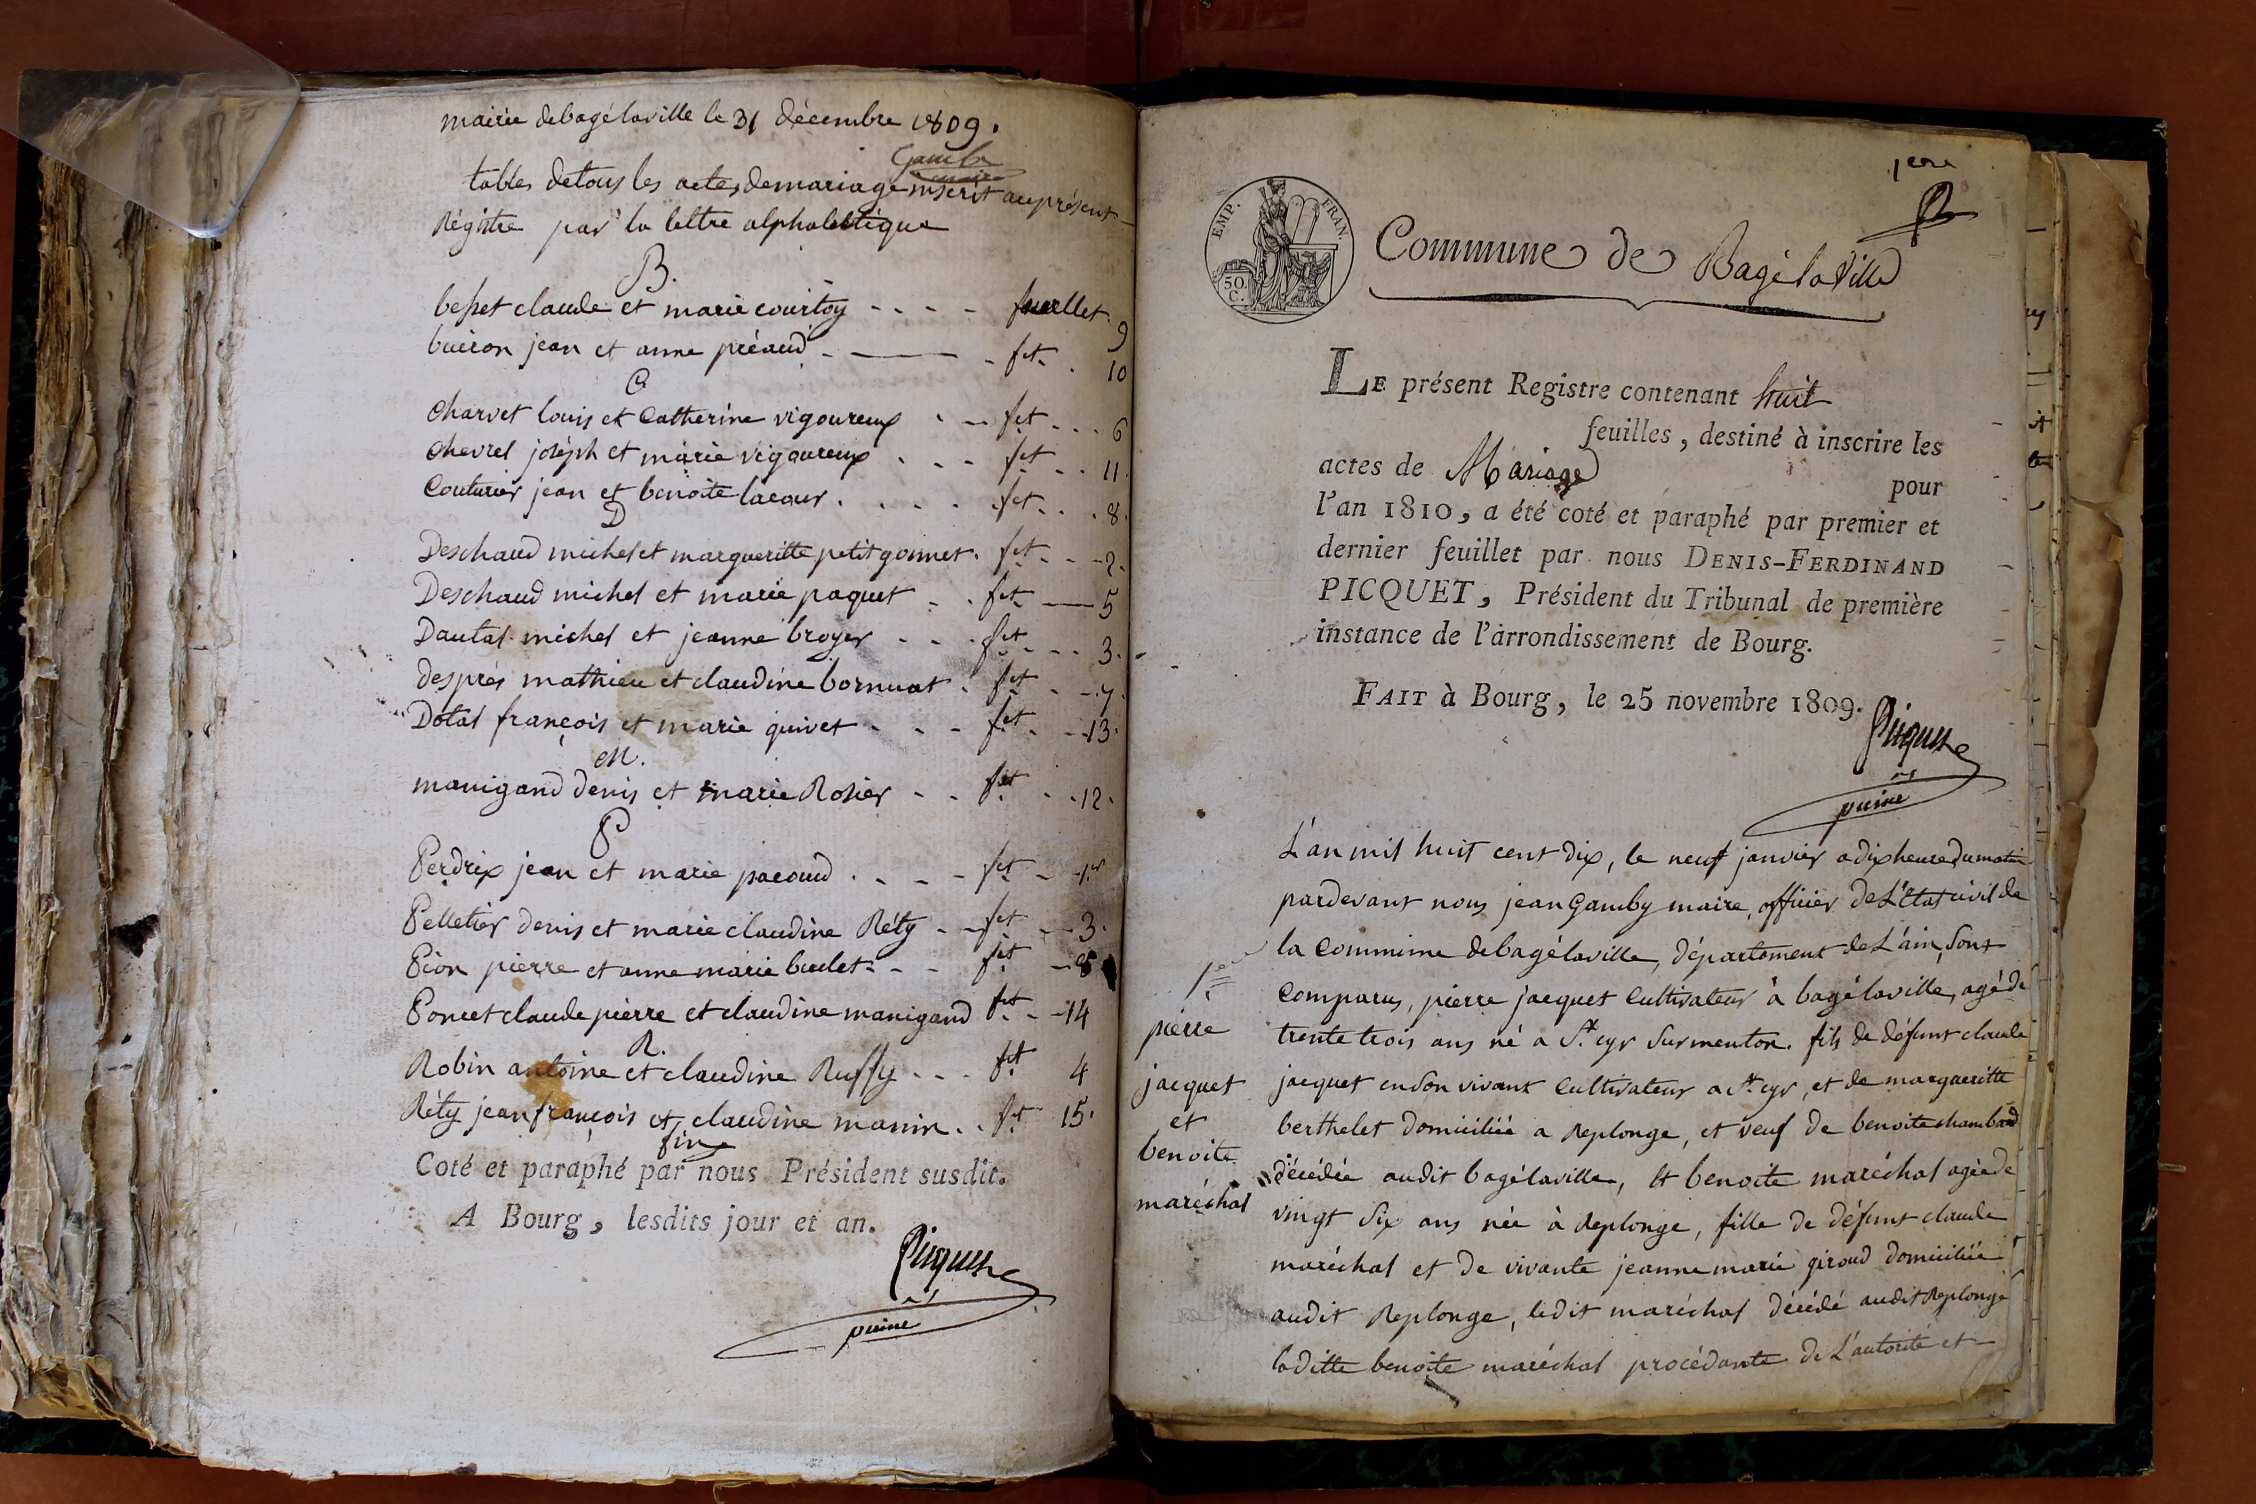 mairie debagélaville le 31 décembre 1809.
Gamby
maire
tables detous les actes demariage inscrit auprésent
Régistre par la lettre alphabetique
B.
besset claude et marie courtoy - - - - feuillet. 9
buiron jean et anne préaud - - fet. 10
C
Charvet louis et Catherine vigoureux - - fet - - - 6
Chevrel joseph et marie vigoureux . - - fet - - 11.
Couturier jean et benoite lacour . . . . fet. . . 8.
D
Deschaud michel et margueritte petitgonnet. fet. - - 2.
Deschaud michel et marie paquet - . fet. — 5
Dautal michel et jeanne broyer - - - fet. - - 3.
després mathieu et claudine bornuat . fet. - - 7.
Dotal françois et marie guivet - - - fet. - - 13.
M.
manigand denis et marie Rosier - - fet . - 12.
P
Perdrix jean et marie pacoud . - - - fet. - 1er
Pelletier denis et marie claudine Réty - - fet - 3.
Pion pierre et anne marie budet - - - fet. - 8
Poncet claude pierre et claudine manigand fet. - 14
R.
Robin antoine et claudine Ruffy - - - fet 4
Réty jeanfrançois et claudine manin . . fet 15.
fin
Coté et paraphé par nous Président susdit.
A Bourg, lesdits jour et an.
Picquet
puiné
1ere
EMP. FRAN.
50.
C.
Commune de Bagé la Ville
LE présent Registre contenant huit
feuilles, destiné à inscrire les
actes de Mariage pour
l'an 1810, a été coté et paraphé par premier et
dernier feuillet par nous DENIS-FERDINAND
PICQUET, Président du Tribunal de première
instance de l'arrondissement de Bourg.
FAIT à Bourg, le 25 novembre 1809.
Picquet
puiné
L'an mil huit cent dix, le neuf janvier a dix heure du matin
pardevant nous jean Gamby maire, officier de L'Etat civil de
la Commune debagélaville, département de L'ain, sont
Comparus, pierre jacquet Cultivateur à bagélaville, agé de
trente trois ans né a St. cyr Surmenton. fils de défunt claude
jacquet enson vivant Cultivateur a St. cyr, et de margueritte
berthelet domiciliée a Replonge, et veuf de benoite chambard
décédée audit bagélaville, Et benoite maréchal agée de
vingt Six ans née à Replonge, fille de défunt claude
maréchal et de vivante jeanne marie giroud domiciliée
audit Replonge, ledit maréchal décédé audit Replonge
laditte benoite maréchal procédante de L'autorité et
1ere
pierre
jacquet
et
benoite
maréchal